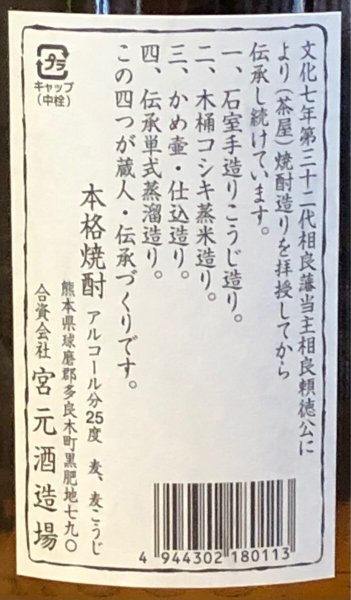 文化七年第三十二代相良藩当主相良頼徳公に
より(茶屋)焼酎造りを拝授してから
伝承し続けています。
一、石室手造りこうじ造り。
二、木桶コシキ蒸米造り。
三、かめ壷・仕込造り。
四、伝承単式蒸溜造り。
この四つが蔵人・伝承づくりです。
本格焼酎 アルコール分25度 麦、麦こうじ
熊本県球磨郡多良木町黒肥地七九〇
合資会社 宮元酒造場
プラ
キャップ
(中栓)
4 944302 180113